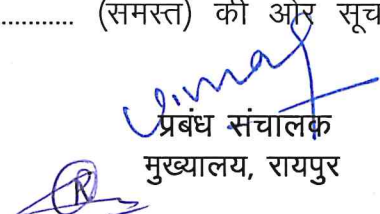 ............ (समस्त) की ओर सूच
प्रबंध संचालक
मुख्यालय, रायपुर
R